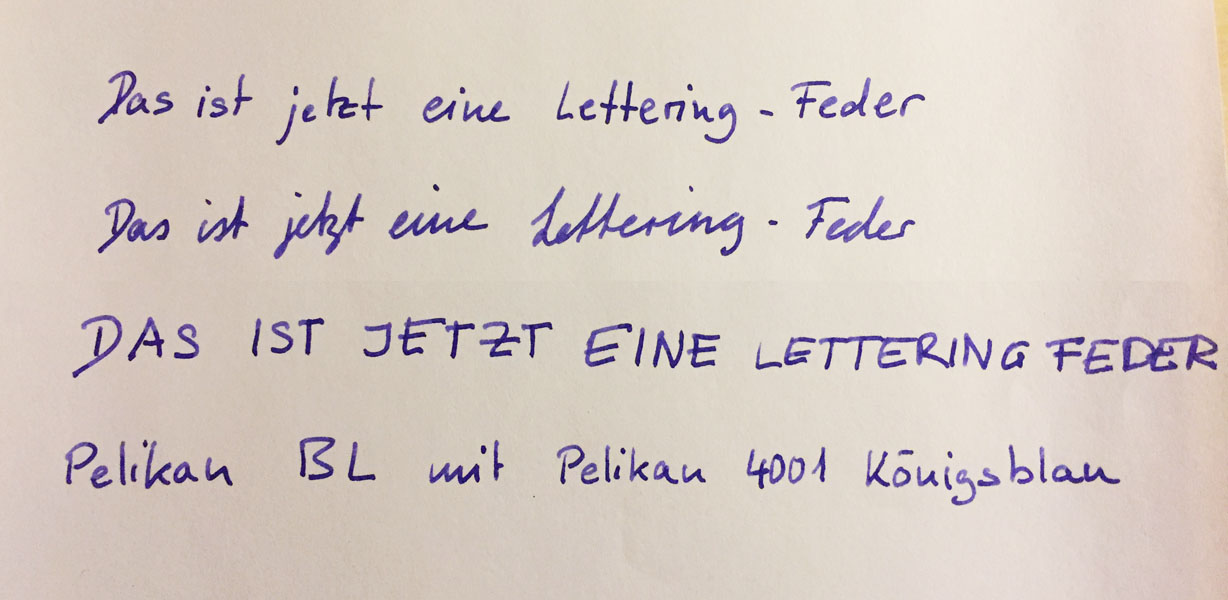 Das ist jetzt eine Lettering - Feder
Das ist jetzt eine Lettering - Feder
DAS IST JETZT EINE LETTERING FEDER
Pelikan BL mit Pelikan 4001 Königsblau